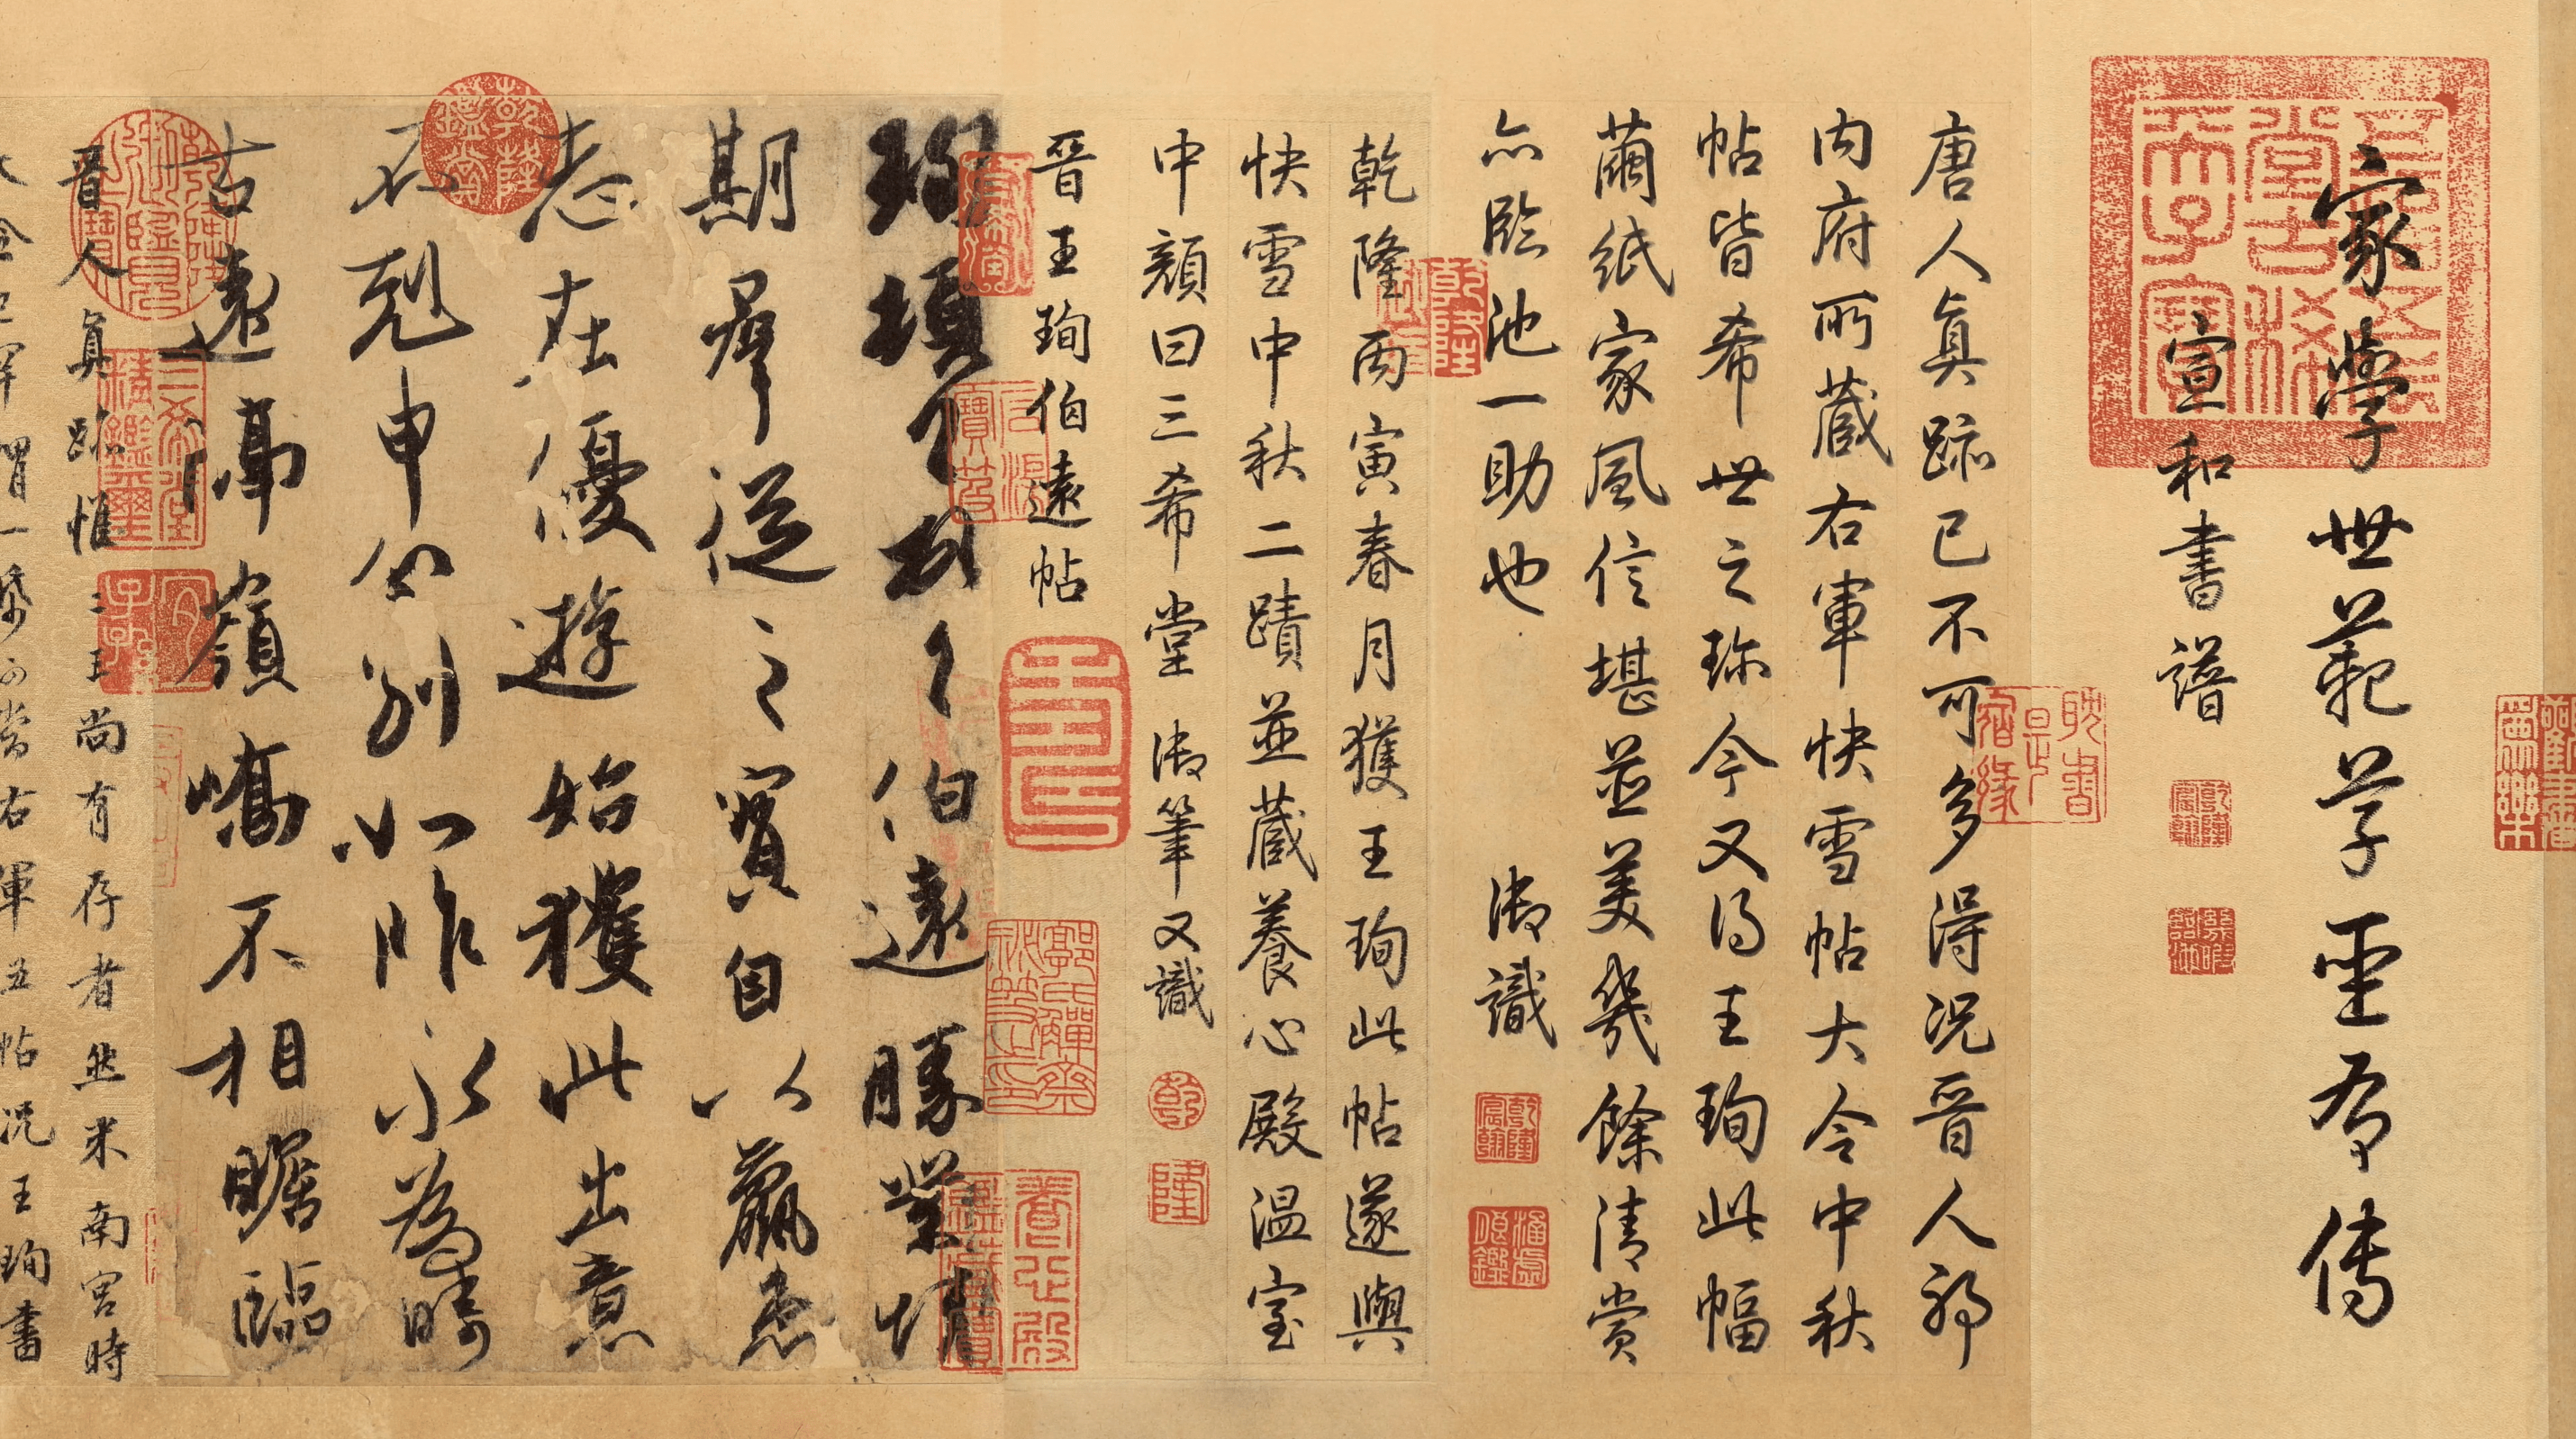 家學世範草聖有傳
宣和書譜
唐人真跡已不可多得況晉人耶
內府所藏右軍快雪帖大令中秋
帖皆希世之珍今又得王珣此幅
繭紙家風信堪並美幾餘清賞
亦臨池一助也 御識
乾隆丙寅春月獲王珣此帖遂與
快雪中秋二蹟並藏養心殿溫室
中顏曰三希堂御筆又識
晉王珣伯遠帖
珣頓首頓首伯遠勝業情
期群從之寶自以羸患
志在優遊始獲此出意
不剋申分別如昨永為疇
古遠隔嶺嶠不相瞻臨
晉人真跡惟二王尚有存者然米南宮時
大令已罕謂一紙可當右軍五帖況王珣書